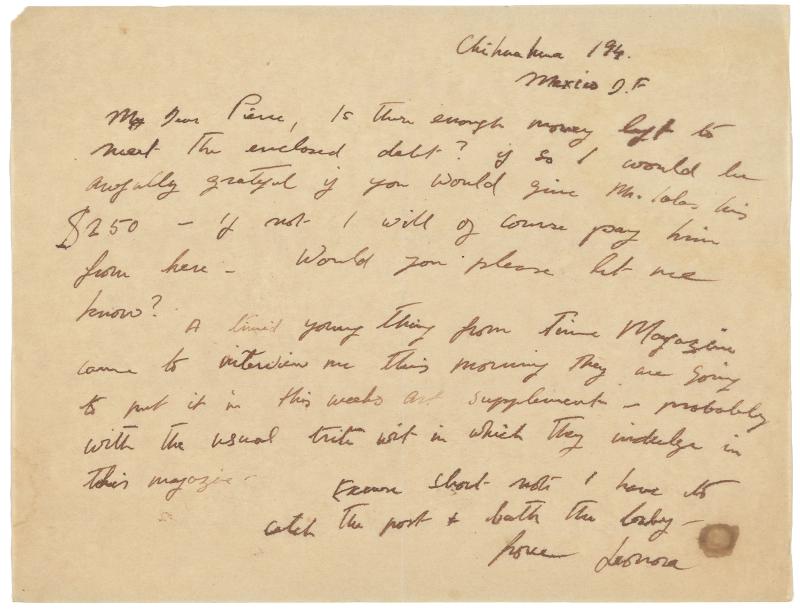 Chihuahua 194.
Mexico D.F
My Dear Pierre, Is there enough money left to
meet the enclosed debt? if so I would be
awfully grateful if you would give Mr. Iolas his
$250 – if not I will of course pay him
from here – Would you please let me
know?
A timid young thing from Time Magazine
came to interview me this morning they are going
to put it in this weeks art supplement – probably
with the usual trite wit in which they indulge in
this magazine –
Excuse short note I have to
catch the post & bath the baby –
Leonora